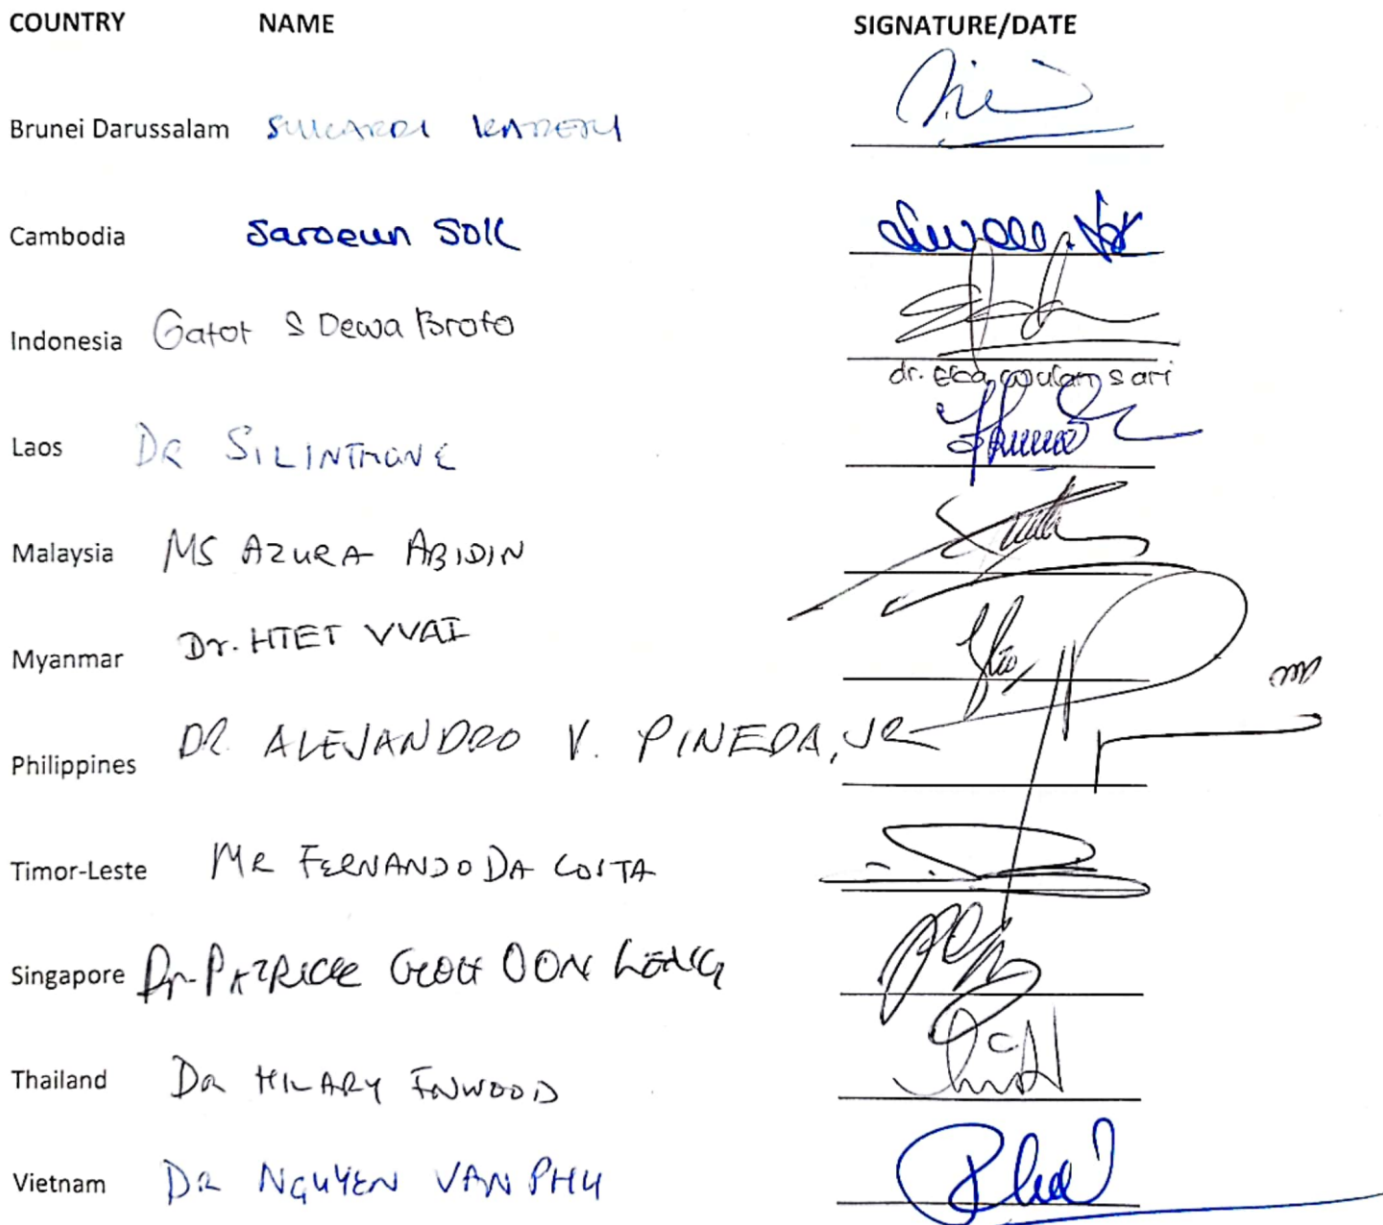 COUNTRY NAME SIGNATURE/DATE
Brunei Darussalam SUKARDI
Cambodia Saroeun SOK
Indonesia Gatot S Dewa Broto
dr. Elsa wulan sari
Laos DR SILINTHONE
Malaysia MS AZURA ABIDIN
Myanmar Dr. HTET VVAI
Philippines DR. ALEJANDRO V. PINEDA, JR
Timor-Leste MR FERNANDO DA COSTA
Singapore Dr. PATRICK GOH OON LENG
Thailand DR HILARY INWOOD
Vietnam DR NGUYEN VAN PHU